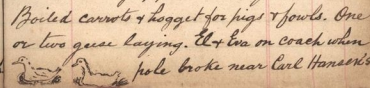 Boiled carrots & hogget for pigs & fowls. One
or two geese laying. El & Eva on coach when
pole broke near Carl Hansen's